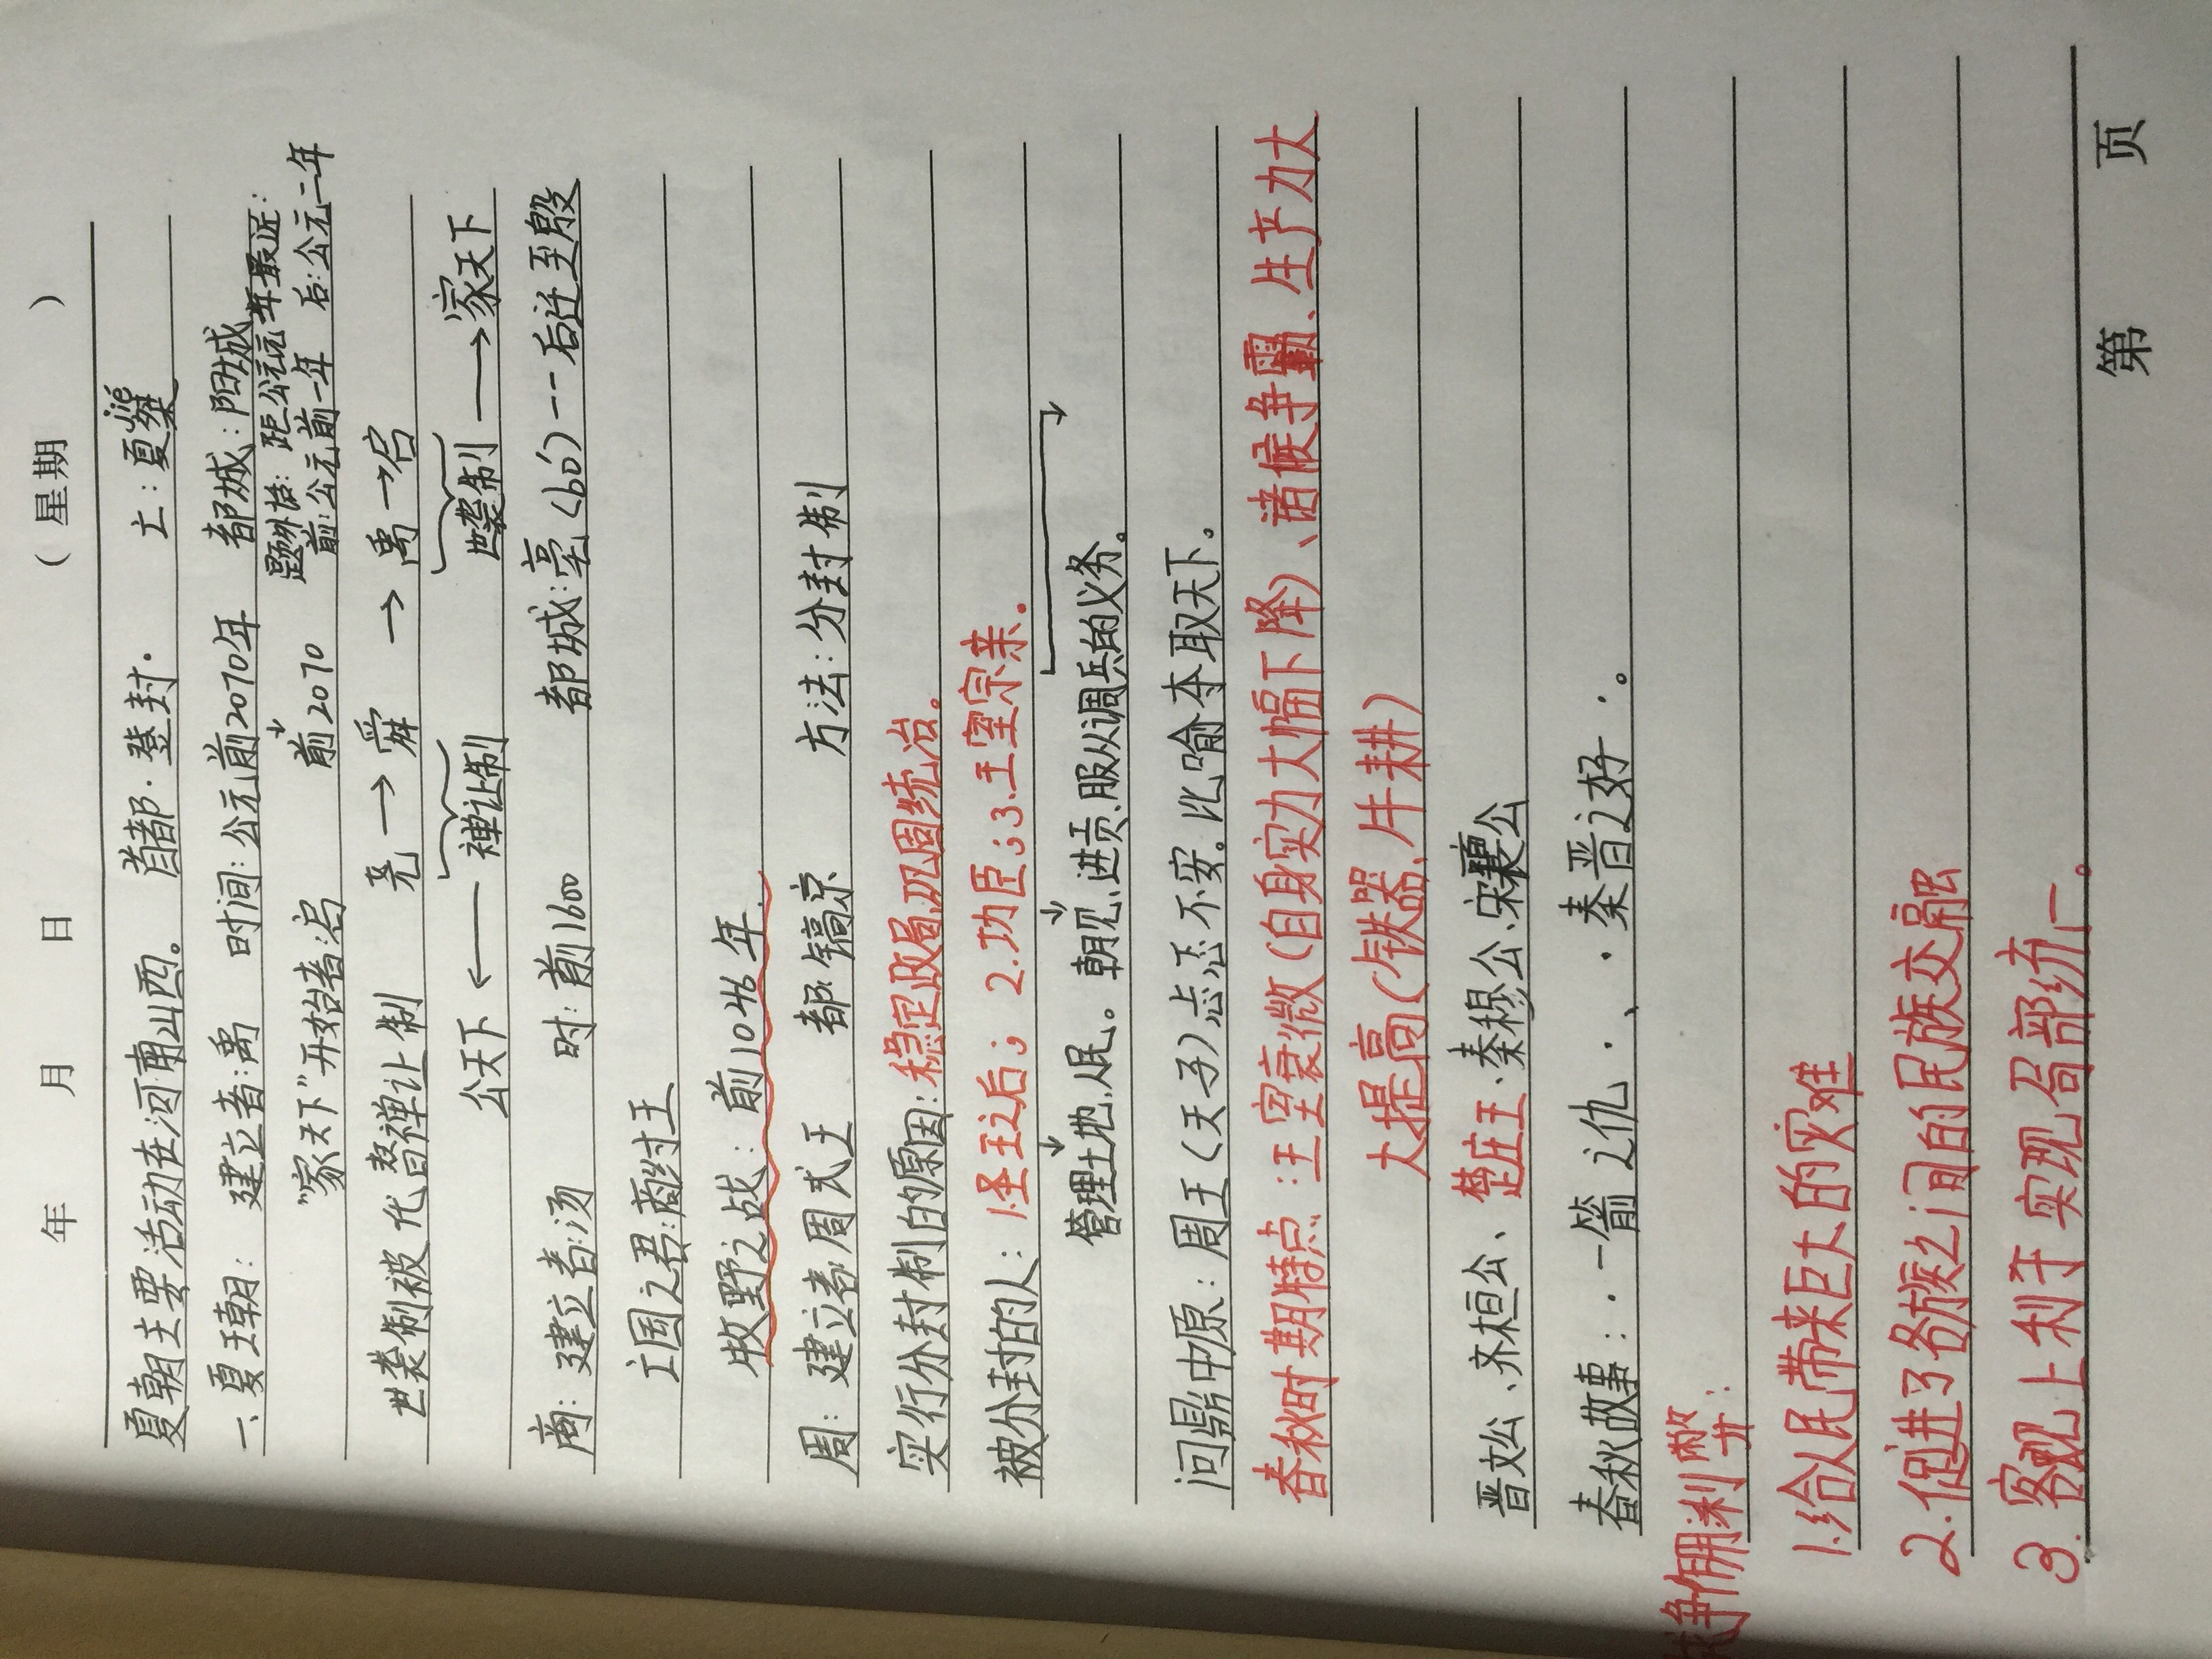 年 月 日 （星期 ）
夏朝主要活动在河南山西。 首都·登封· 亡:夏桀 jié
一、夏王朝: 建立者:禹 时间:公元前2070年 都城:阳城
↓ 题外话: 距公元元年最近:
"家天下"开始者:启 前2070 前:公元前一年 后:公元二年
世袭制被代替禅让制 尧→舜 → 禹→启
公天下 ← 禅让制 世袭制 → 家天下
商: 建立者:汤 时:前1600 都城:亳(bó)--后迁至殷
亡国之君:商纣王
牧野之战: 前1046年.
周: 建立者:周武王 都:镐京 方法:分封制
实行分封制的原因:稳定政局,巩固统治。
被分封的人: 1.圣王之后; 2.功臣;3.王室宗亲。
↓ ↓ ↓
管理土地、人民。朝见、进贡、服从调兵的义务。
问鼎中原: 周王(天子)忐忑不安。比喻夺取天下。
春秋时期特点:王室衰微(自身实力大幅下降)、诸候争霸、生产力大
大提高(铁器、牛耕)
晋文公、齐桓公、楚庄王、秦穆公、宋襄公
春秋故事:·一箭之仇·、·秦晋之好·。
战争作用利弊:
1.给人民带来巨大的灾难
2.促进了各族之间的民族交融
3.客观上利于实现局部统一。
第 页